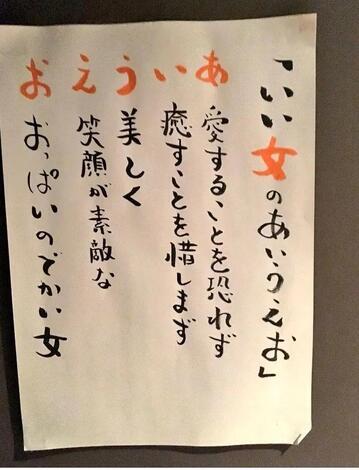 「いい女のあいうえお」
あ 愛することを恐れず
い 癒すことを惜しまず
う 美しく
え 笑顔が素敵な
お おっぱいのでかい女